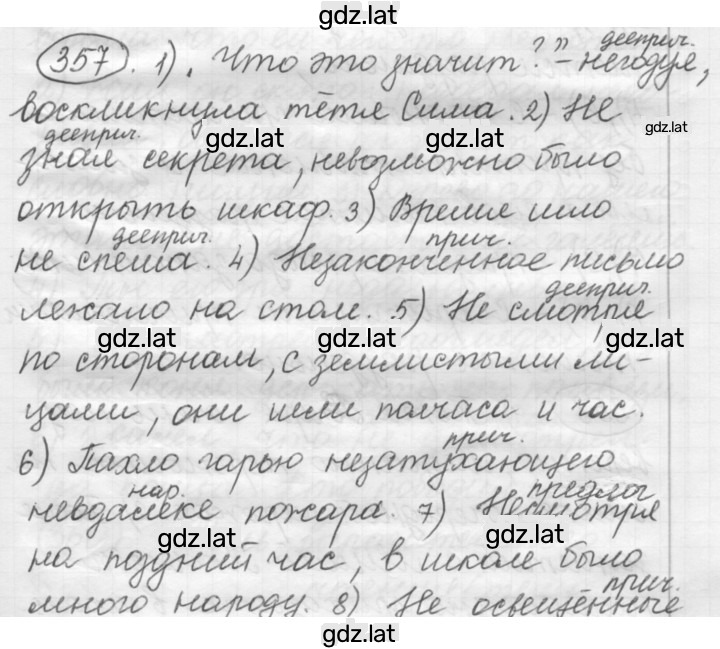 gdz.lat
дееприч.
357. 1) „Что это значит?" - негодуя,
gdz.lat
воскликнула тётя Сима. 2) Не
дееприч. gdz.lat gdz.lat gdz.lat
зная секрета, невозможно было
открыть шкаф. 3) Время шло
дееприч. прич.
не спеша. 4) Незаконченное письмо
дееприч.
лежало на столе. 5) Не смотря
gdz.lat gdz.lat gdz.lat
по сторонам, с землистыми ли-
цами, они шли полчаса и час.
прич.
6) Пахло гарью незатухающего
нар. предлог
невдалеке пожара. 7) Несмотря
gdz.lat gdz.lat
на поздний час, в школе было
прич.
много народу. 8) Не освещённые
gdz.lat